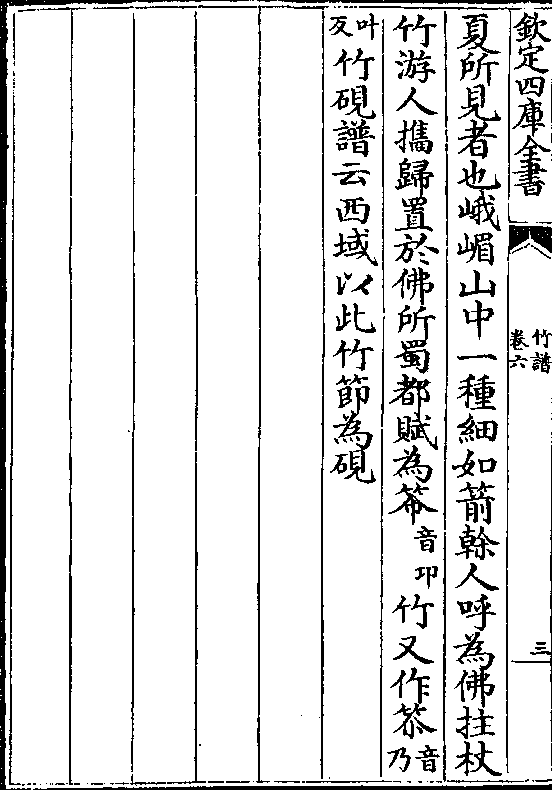 欽定四庫全書
竹譜
卷六
三
夏所見者也峨嵋山中一種細如箭榦人呼為佛拄杖
竹游人攜歸置於佛所蜀都賦為音卭竹又作音乃
叶竹硯譜云西域以此竹節為硯